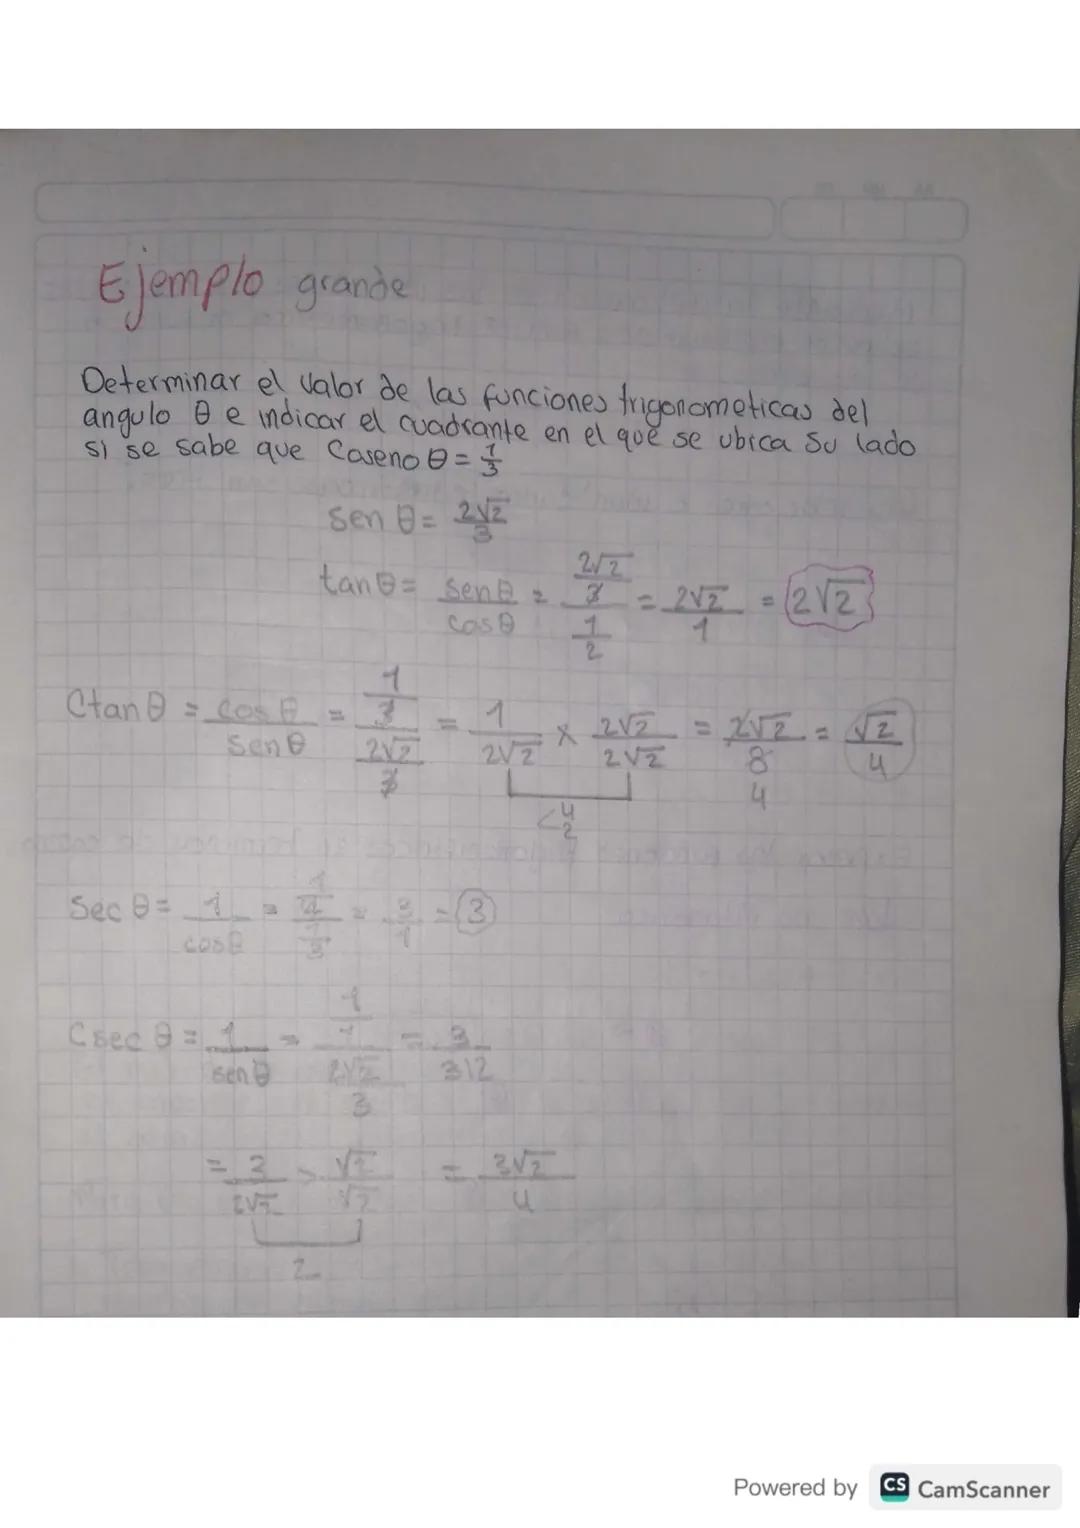 Ejemplo grande
Determinar el valor de las funciones trigonometicas del
angulo θ e indicar el cuadrante en el que se ubica su lado
si se sabe que Coseno θ = 1/3
sen θ = 2√2/3
tan θ = sen θ/cos θ = (2√2/3)/(1/2) = 2√2/1 = 2√2
Ctan θ = cos θ/Sen θ = (1/3)/(2√2/3) = 1/2√2 × 2√2/2√2 = 2√2/8 = √2/4
4
Sec θ = 1/cos θ = 3/1 = 3
Csec θ = 1/sen θ = (1/1)/(2√2/3) = 3/3√2
= 3/2√2 √2/√2 = 3√2/4
2
Powered by CS CamScanner